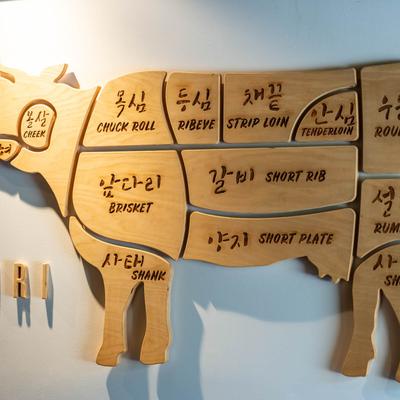 볼살
CHEEK
혀
목심
CHUCK ROLL
등심
RIBEYE
채끝
STRIP LOIN
안심
TENDERLOIN
우둔
ROU
앞다리
BRISKET
갈비 SHORT RIB
설
RUM
양지 SHORT PLATE
사태
SHANK
사
SH
RI